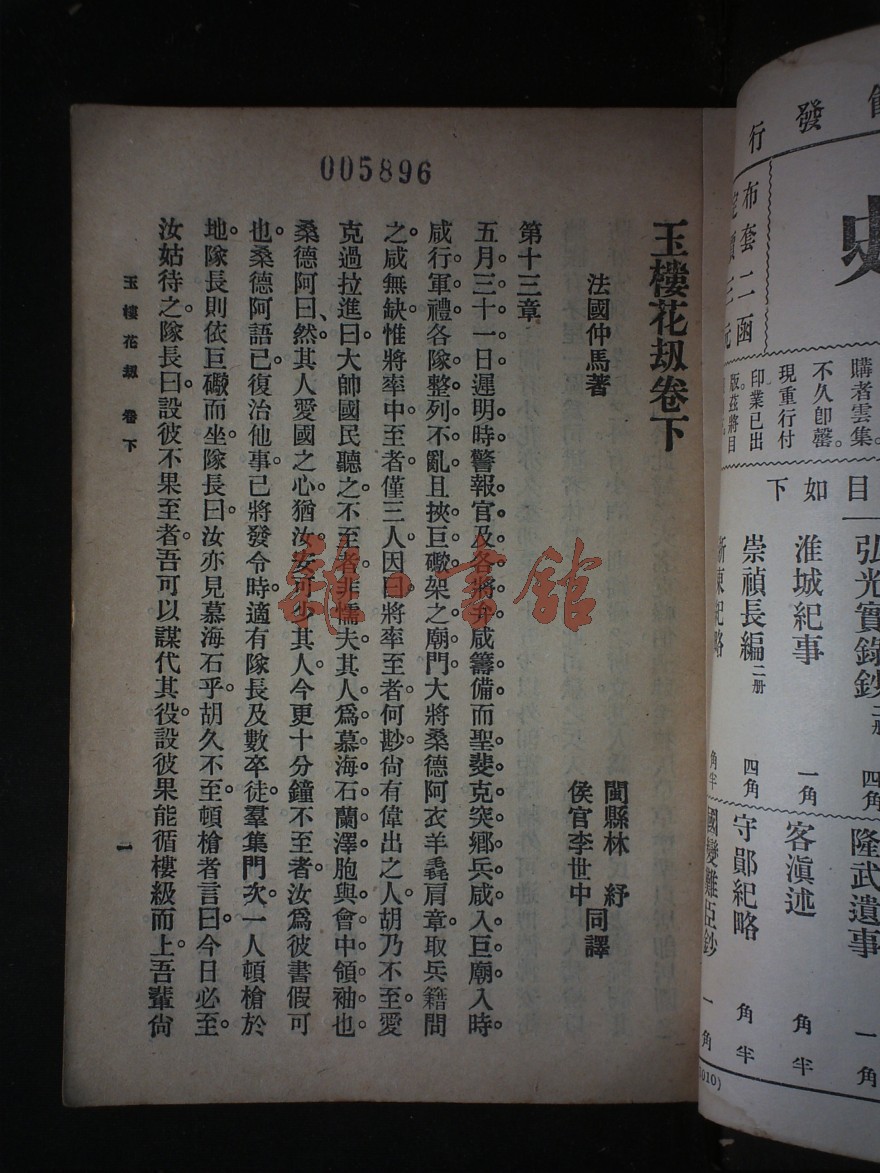 005896
玉樓花刼卷下
法國仲馬著
閩縣林紓
侯官李世中同譯
第十三章
五月三十一日遲明時警報官及各將弁咸籌備而聖斐克突鄉兵咸入巨廟入時。
咸行軍禮各隊整列不亂且挾巨礮架之廟門大將桑德阿衣羊毳肩章取兵籍閱
之咸無缺惟將率中至者僅三人因曰將率至者何尠尙有偉出之人胡乃不至愛
克過拉進曰大帥國民聽之不至者非懦夫其人爲慕海石蘭澤胞與會中領袖也。
桑德阿曰、然其人愛國之心猶汝安可少其人今更十分鐘不至者汝爲彼書假可
也桑德阿語已復治他事已將發令時適有隊長及數卒徒羣集門次一人頓槍於
地隊長則依巨礮而坐隊長曰汝亦見慕海石乎胡久不至頓槍者言曰今日必至。
汝姑待之隊長曰設彼不果至者吾可以謀代其役設彼果能循樓級而上吾輩尙
玉樓花刼 卷下
一
雜·書館
發行
史
布套二函
購者雲集。
不久卽罄。
現重行付
印業已出
版茲將目
目如下
弘光實錄鈔二册 四角
淮城紀事 一角
崇禎長編二册 四角
隆武遺事 一角
客滇述 角半
守鄖紀略 角半
國變難臣鈔 一角